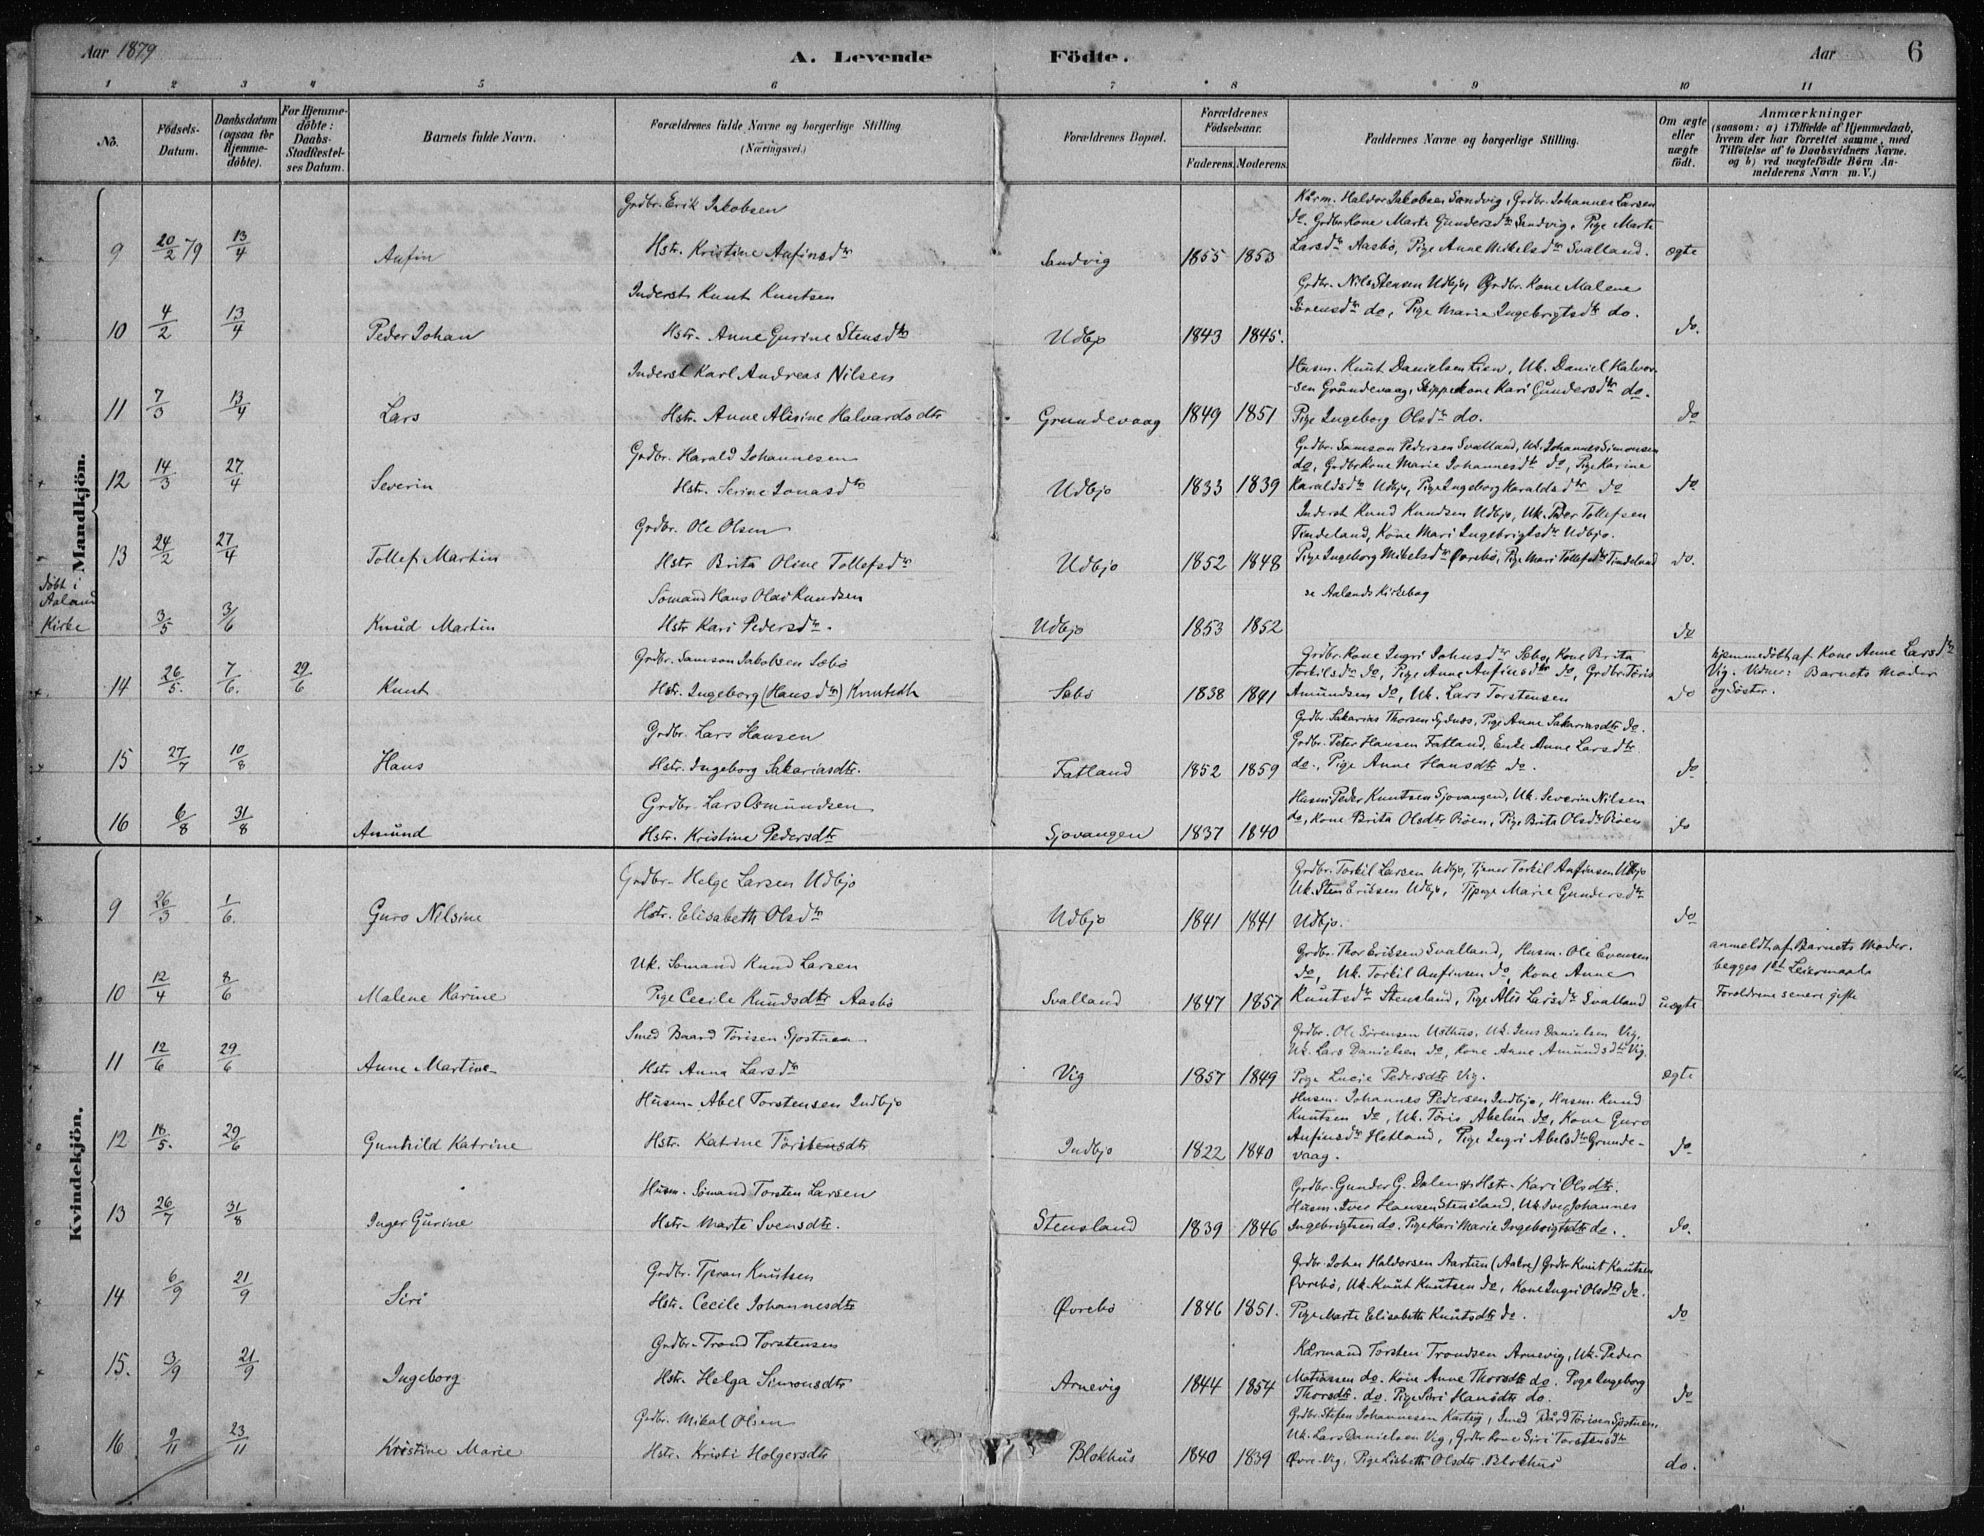 Aar 1879
A. Levende Födte.
Aar
6
1 2 3 4 5 6 7 8 9 10 11
No.
Födsels-Datum.
Daabsdatum (ogsaa for Hjemme-döbte).
For Hjemme-döbte: Daabs-Stadfæstel-ses Datum.
Barnets fulde Navn.
Forældrenes fulde Navne og borgerlige Stilling (Næringsvei.)
Forældrenes Bopæl.
Forældrenes Födselsaar.
Faderens. Moderens.
Faddernes Navne og borgerlige Stilling.
Om ægte eller uægte födt.
Anmærkninger
(saasom: a) i Tilfælde af Hjemmedaab, hvem der har forrettet samme, med Tilföielse af to Daabsvidners Navne. og b) ved uægtefödte Börn An-melderens Navn m. V.)
Mandkjön.
Grdbr. Erik Jakobsen
Kårm. Haldor Jakobsen Sandvig, Grdbr. Johannes Larsen
do. Grdbr.Kone Marte Gundersdtr Sandvig, Pige Marte
9 20/2 79 13/4 Anfin Hstr. Kristine Anfinsdtr Sandvig 1855 1853 Larsdtr Aasbö, Pige Anne Mikelsdtr Svalland. ægte
Inderst Knut Knutsen
Grdbr. Nils Stensen Udbjo, Grdbr. Kone Malene
Sörensdtr do, Pige Marie Ingebrigtsdtr do.
10 4/2 13/4 Peder Johan Hstr. Anne Gurine Stensdtr Udbjo 1843 1845. do.
Inderst Karl Andreas Nilsen
Husm. Knut Danielsen Lien, Uk. Daniel Halvor-
-sen Grundevaag, Skipperkone Kari Gundersdtr do.
11 7/3 13/4 Lars Hstr. Anne Alisine Halvardsdtr Grundevaag 1849 1851 Pige Ingeborg Olsdtr do. do
Grdbr. Harald Johannesen
Grdbr. Samson Pedersen Svalland, Uk. Johannes Simonsen
do, Grdbr Kone Marie Johannesdtr do, Pige Karine
12 14/3 27/4 Severin Hstr. Serine Jonasdtr Udbjo 1833 1839 Haraldsdtr Udbjo, Pige Ingeborg Haraldsdtr do do
Grdbr. Ole Olsen
Inderst Knud Knudsen Udbjo, Uk. Peder Tollefsen
Tindeland, Kone Mari Ingebrigtsdtr Udbjo.
13 24/2 27/4 Tollef Martin Hstr Brita Oline Tollefsdtr Udbjo 1852 1848 Pige Ingeborg Mikelsdtr Övrebö, Pige Mari Tollefsdtr Tindeland do.
döbt i
Aaland
Kirke
Sömand Hans Olai Knudsen
se Aalands Kirkebog
3/5 3/6 Knud Martin Hstr Kari Pedersdtr. Udbjo 1853 1852 do
Grdbr. Samson Jakobsen Sæbö
Grdbr. Kone Ingri Johnsdtr Sæbö, Kone Brita
Torkilsdtr do, Pige Anne Anfinsdtr do, Grdbr. Töris
14 26/5. 7/6. 29/6 Knut Hstr. Ingeborg (Hansdtr) Knutsdtr Sæbö 1838 1841 Amundsen do, Uk. Lars Torstensen do
hjemmedöbt af Kone Anne Larsdtr
Vig. Vidner: Barnets Moder
og Söster.
Grdbr. Lars Hansen
Grdbr. Sakarias Thorsen Sydnæs, Pige Anne Sakariasdtr do.
Grdbr. Peter Hansen Fatland, Enke Anne Larsdtr
15 27/7 10/8 Hans Hstr. Ingeborg Sakariasdtr. Fatland 1852 1859 do., Pige Anne Hansdtr do. do
Grdbr. Lars Osmundsen
Husm Peder Knutsen Sjovangen, Uk. Severin Nilsen
16 6/8 31/8 Amund Hstr. Kristine Pedersdtr Sjovangen 1837 1840 do, Kone Brita Olsdtr Röen, Pige Brita Olsdtr Röen do
Kvindekjön.
Grdbr. Helge Larsen Udbjo
Grdbr. Torkil Larsen Udbjo, Tjener Torkil Anfinsen Udbjo
Uk. Sten Eriksen Udbjo, Tjpige Marie Gundersdtr
9 26/3 1/6. Guro Nilsine Hstr. Elisabeth Olsdtr Udbjo 1841 1841 Udbjo. do
Uk. Sömand Knud Larsen
Grdbr. Thor Eriksen Svalland, Husm. Ole Evensen
do, Uk. Torkil Anfinsen do, Kone Anne
10 12/4 8/6 Malene Karine Pige Cecile Knudsdtr Aasbö Svalland 1847 1857 Knutsdtr Stensland, Pige Alis Larsdtr Svalland uægte
anmeldt af Barnets Moder.
begges 1ste Leiermaal
Foreldrene senere gifte
Smed Baard Törisen Sjostuen
Grdbr. Ole Sörensen Westhus, Uk. Jens Danielsen Vig,
Uk. Lars Danielsen do, Kone Anne Amundsdtr Vig.
11 12/6 29/6 Anne Martine Hstr Anna Larsdtr Vig 1857 1849 Pige Lucie Pedersdtr Vig. ægte
Husm. Abel Torstensen Indbjo
Husm. Johannes Pedersen Indbjo, Husm. Knud
Knutsen do, Uk. Töris Abelsen do, Kone Guro
12 18/5. 29/6 Gunhild Katrine Hstr. Katrine Torstensdtr Indbjo 1822 1840 Anfinsdtr Hetland, Pige Ingri Abelsdtr Grunde-
vaag. do
Husm. Sömand Torsten Larsen
Grdbr. Gunder G. Dalen og Hstr. Kari Olsdtr.
Husm. Iver Hansen Stensland, Uk. Iver Johannes
13 26/7 31/8 Inger Gurine Hstr. Marte Svensdtr. Stensland 1839 1846 Ingebrigtsen do. Pige Kari Marie Ingebrigtsdtr do. do.
Grdbr. Tjeran Knutsen
Grdbr. John Haldorsen Aartun (Aakre) Grdbr Knut Knutsen
Övrebö, Uk. Knut Knutsen do, Kone Ingri Olsdtr do.
14 6/9 21/9 Siri Hstr. Cecile Johannesdtr Övrebö 1846 1851. Pige Marte Elisabeth Knutsdtr do. do
Grdbr. Trond Torstensen
Kårmand Torsten Trondsen Arnevig, Uk. Peder
15. 3/9 21/9 Ingeborg Hstr. Helga Simonsdtr Arnevig 1844 1854 Matiassen do. Kone Anne Thorsdtr do. Pige Ingeborg
Thorsdtr. do. Pige Siri Hansdtr do. do
Grdbr. Mikal Olsen
Grdbr. Stefen Johannesen Karteig, Smed Bård Törisen Sjostuen,
Uk. Lars Danielsen Vig, Grdbr Kone Siri Torstensdtr
16 9/11 23/11 Kristine Marie Hstr. Kristi Holgersdtr Blokhus 1840 1839 Övre-Vig, Pige Lisbeth Olsdtr Blokhus do.